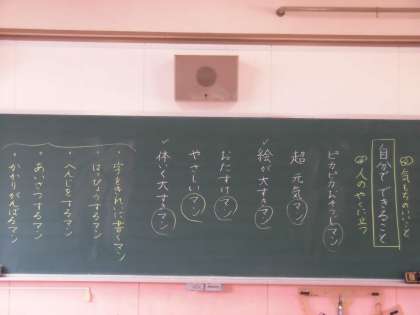 ㋱気もちのいいこと
自分でできること
㋱人のやくに立つ
ピカピカおそうじマン
超元気マン
✓絵が大すきマン
おたすけマン
やさしいマン
✓体いく大すきマン
・字をきれいに書くマン
・はっぴょうするマン
・へんじをするマン
・あいさつするマン
・かかりがんばるマン